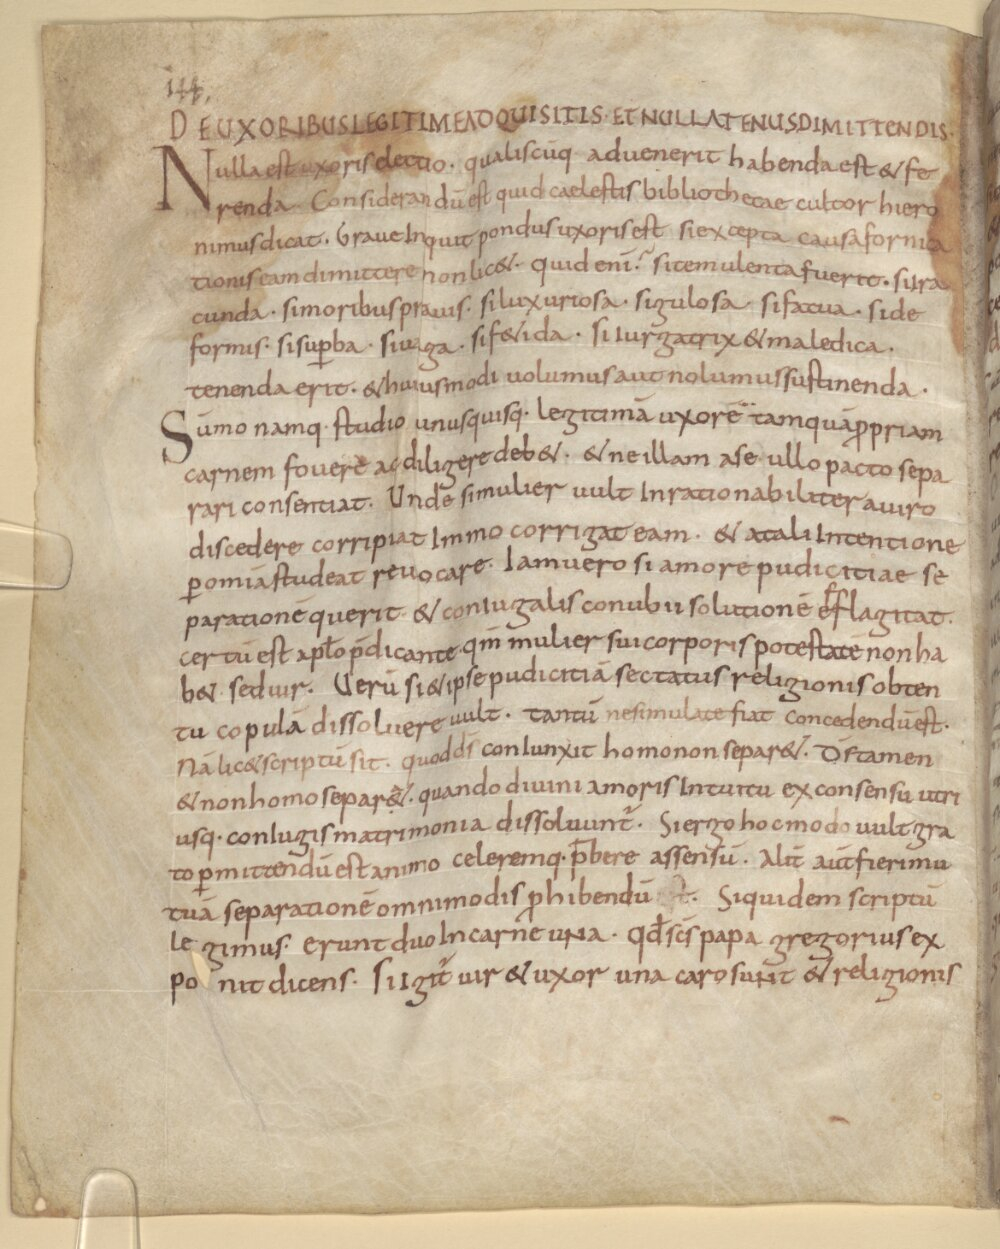 144,
DE UXORIBUS LEGITIME ADQUISITIS· ET NULLATENUS DIMITTENDIS·
Nulla est uxoris electio· qualiscūq· advenerit habenda est & fe
renda· Considerandū est quid caelestis bibliothecae cultor hiero
nimus dicat· Grave Inquit pondus uxoris est si excepta causa fornica
tionis eam dimittere non lic&· quid enī? si temulenta fuerit· si Ira
cunda· si moribus pravis· si luxuriosa· si gulosa· si fatua· si de
formis· si supba· si vaga· si f&ida· si Iurgatrix & maledica·
tenenda erit· & huiusmodi volumus aut nolumus sustinenda·
Sūmo namq· studio unusquisq· legitimā uxorē tamquā ppriam
carnem fovere ac diligere deb&· & ne illam a se ullo pacto sepa
rari consentiat· Unde si mulier vult Inrationabiliter a viro
discedere corripiat Immo corrigat eam· & a tali Intentione
p omīa studeat revocare· Iam vero si amore pudicitiae se
parationē querit· & coniugalis conubii solutionē efflagitat·
certū est aplo pdicante qm mulier sui corporis potestatē non ha
b& sed vir· Verū si & ipse pudicitiā sectatus religionis obten
tu copulā dissolvere vult· tantū ne simulate fiat concedendū est·
Nā lic& scriptū sit· quod ds conIunxit homo non separ&· Ds tamen
& non homo separ&· quando divini amoris Intuitu ex consensu utri
usq· conIugis matrimonia dissolvunt· Si ergo hoc modo vult gra
to pmittendū est animo celeremq· pbere assensū· Alit aut fieri mu
tuā separationē omnimodis phibendū est· Siquidem scriptū
legimus· erunt duo In carne una· qd scs papa gregorius ex
ponit dicens· Si Igit vir & uxor una caro sunt & religionis